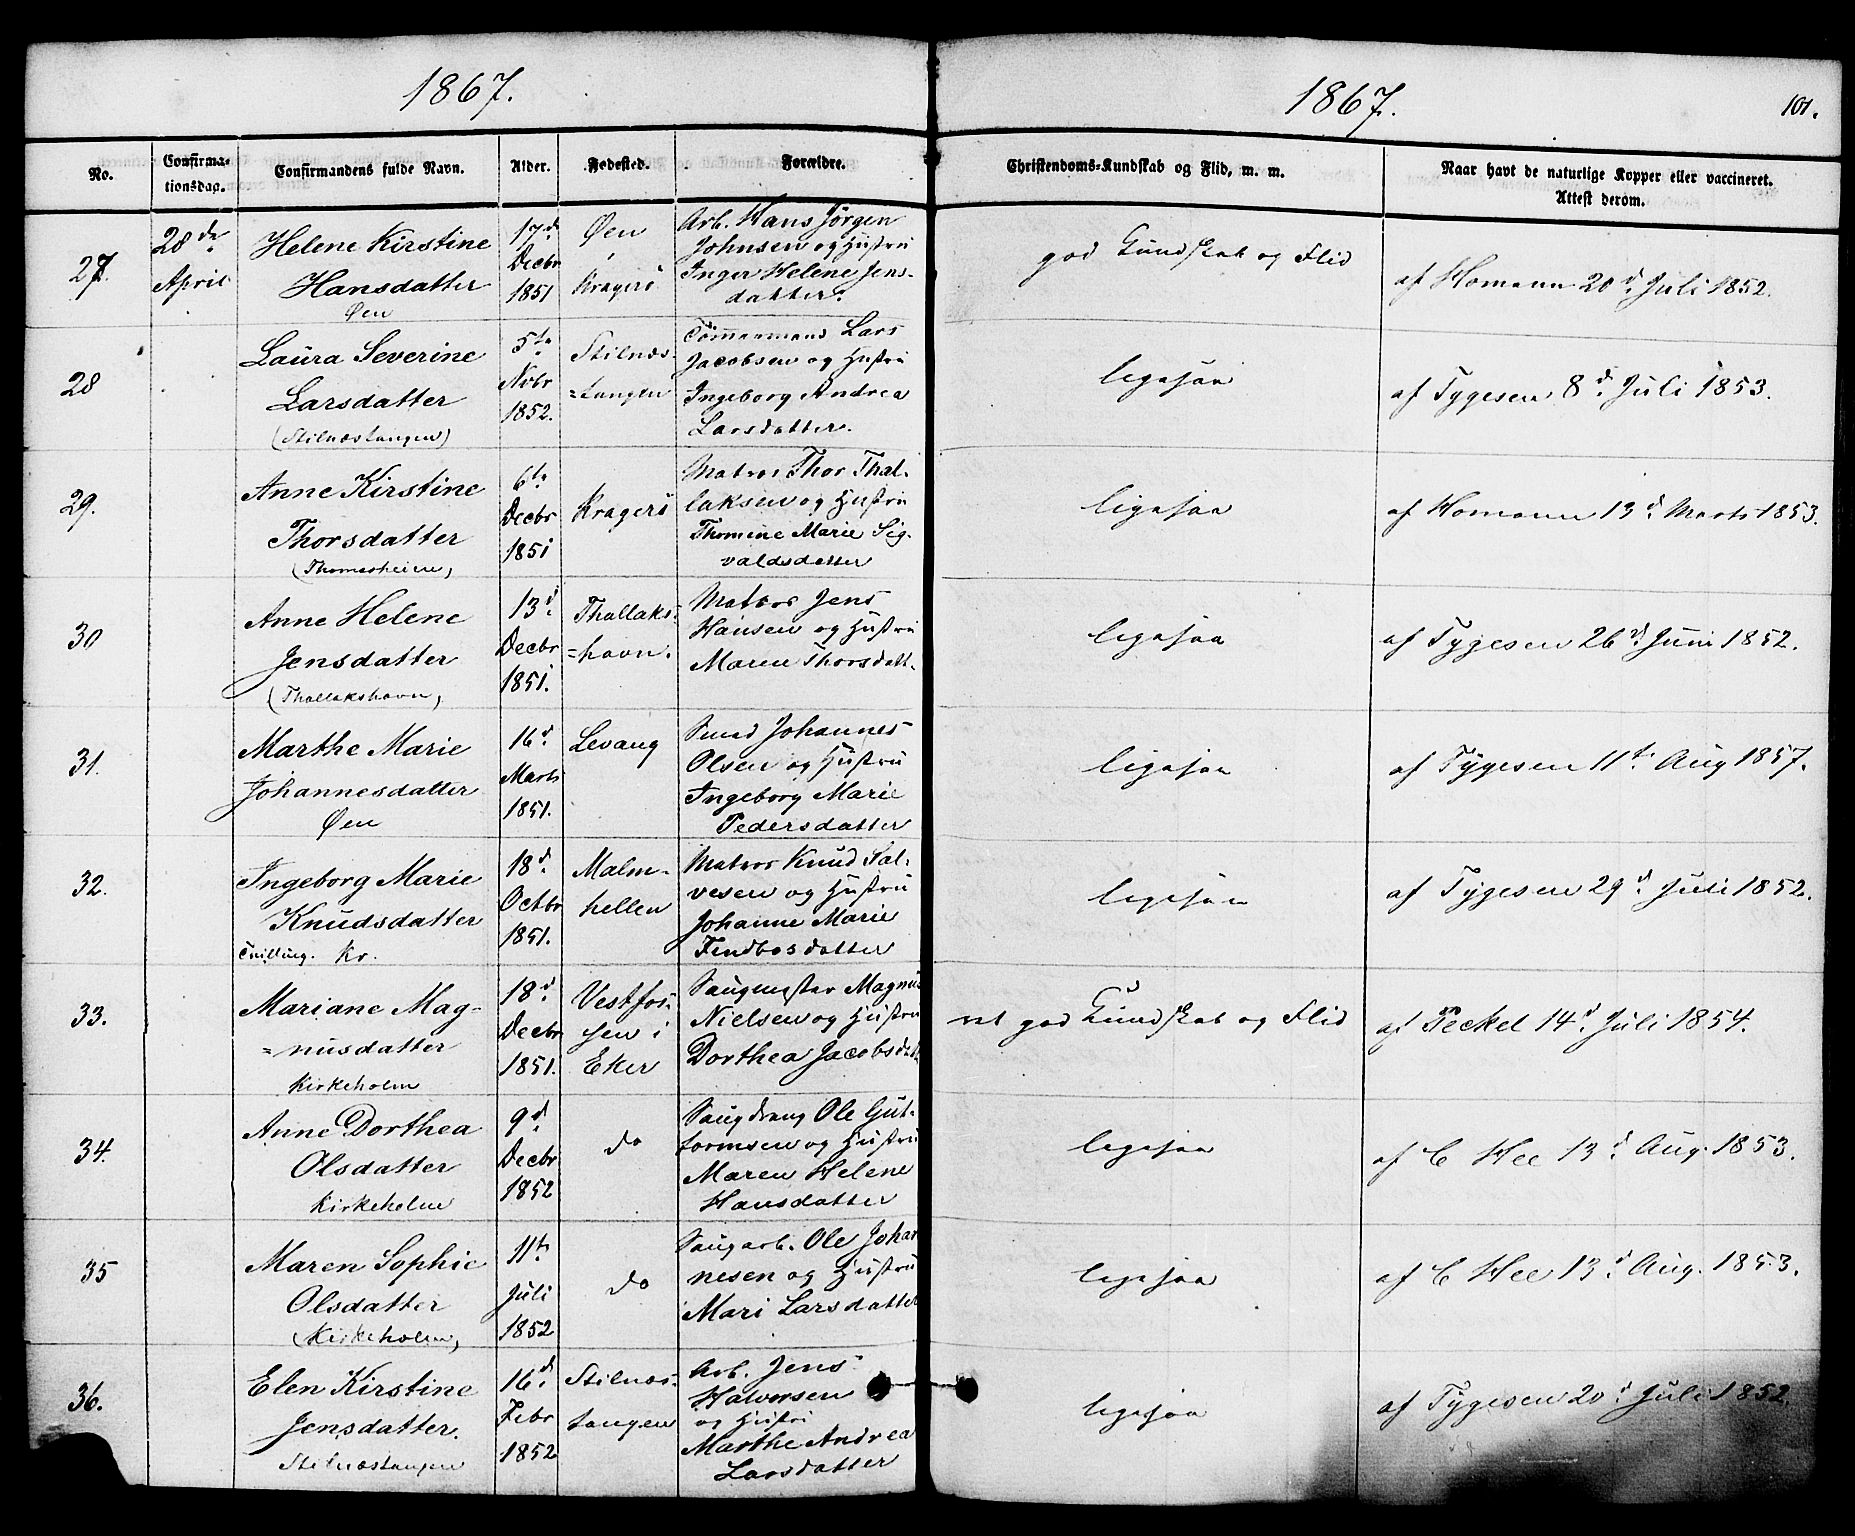 1867.
1867.
101.
No.
Confirma-
tionsdag.
Confirmandens fulde Navn.
Alder.
Fødested.
Forældre.
Christendoms-Kundskab og Flid, m. m.
Naar havt de naturlige Kopper eller vaccineret.
Attest derom.
27.
28de
April
Helene Kirstine
Hansdatter
Øen
17d
Decbr
1851
Øen
Kragerö
Arb. Hans Jørgen
Johnsen og Hustru
Inger Helene Jens-
datter.
god Kundskab og Flid
af Homann 20d Juli 1852.
28
Laura Severine
Larsdatter
(Stilnæstangen)
5te
Novbr
1852.
Stilnæs-
=tangen
Tömmermand Lars
Jacobsen og Hustru
Ingeborg Andrea
Larsdatter.
ligesaa
af Tygesen 8d Juli 1853.
29.
Anne Kirstine
Thorsdatter
(Thomesheim)
6te
Decbr
1851
Kragerö
Matros Thor Thal-
laksen og Hustru
Thomine Marie Sig-
valdsdatter
ligesaa
af Homann 13d Marts 1853.
30
Anne Helene
Jensdatter
(Thallakshavn)
13d
Decbr
1851.
Thallaks-
=havn.
Matros Jens
Hansen og Hustru
Maren Thorsdatt.
ligesaa
af Tygesen 26d Juni 1852.
31.
Marthe Marie
Johannesdatter
Øen
16d
Marts
1851.
Levang
Smed Johannes
Olsen og Hustru
Ingeborg Marie
Pedersdatter
ligesaa
af Tygesen 11te Aug 1857.
32.
Ingeborg Marie
Knudsdatter
Tvilling. Kr.
18d
Octbr
1851.
Malm-
hellen
Matros Knud Sal-
vesen og Hustru
Johanne Marie
Findbosdatter
ligesaa
af Tygesen 29d Juli 1852.
33.
Mariane Mag-
=nusdatter
Kirkeholm
18d
Decbr
1851.
Vestfos-
sen i
Eker
Saugmester Magnus
Nielsen og Hustru
Dorthea Jacobsdatt
ret god Kundskab og Flid
af Peckel 14d Juli 1854.
34.
Anne Dorthea
Olsdatter
Kirkeholm
9d
Decbr
1852
do
Saugdreng Ole Gut-
tormsen og Hustru
Maren Helene
Hansdatter
ligesaa
af C Hee 13d Aug. 1853.
35
Maren Sophie
Olsdatter
(Kirkeholm)
11te
Juli
1852
do
Saugarb. Ole Johan
nesen og Hustru
Mari Larsdatter
ligesaa
af C Hee 13d Aug. 1853.
36.
Elen Kirstine
Jensdatter.
Stilnæstangen
16d
Febr
1852
Stilnæs-
tangen
Arb. Jens
Halvorsen
og Hustru
Marthe Andrea
Larsdatter
ligesaa
af Tygesen 20d Juli 1852.